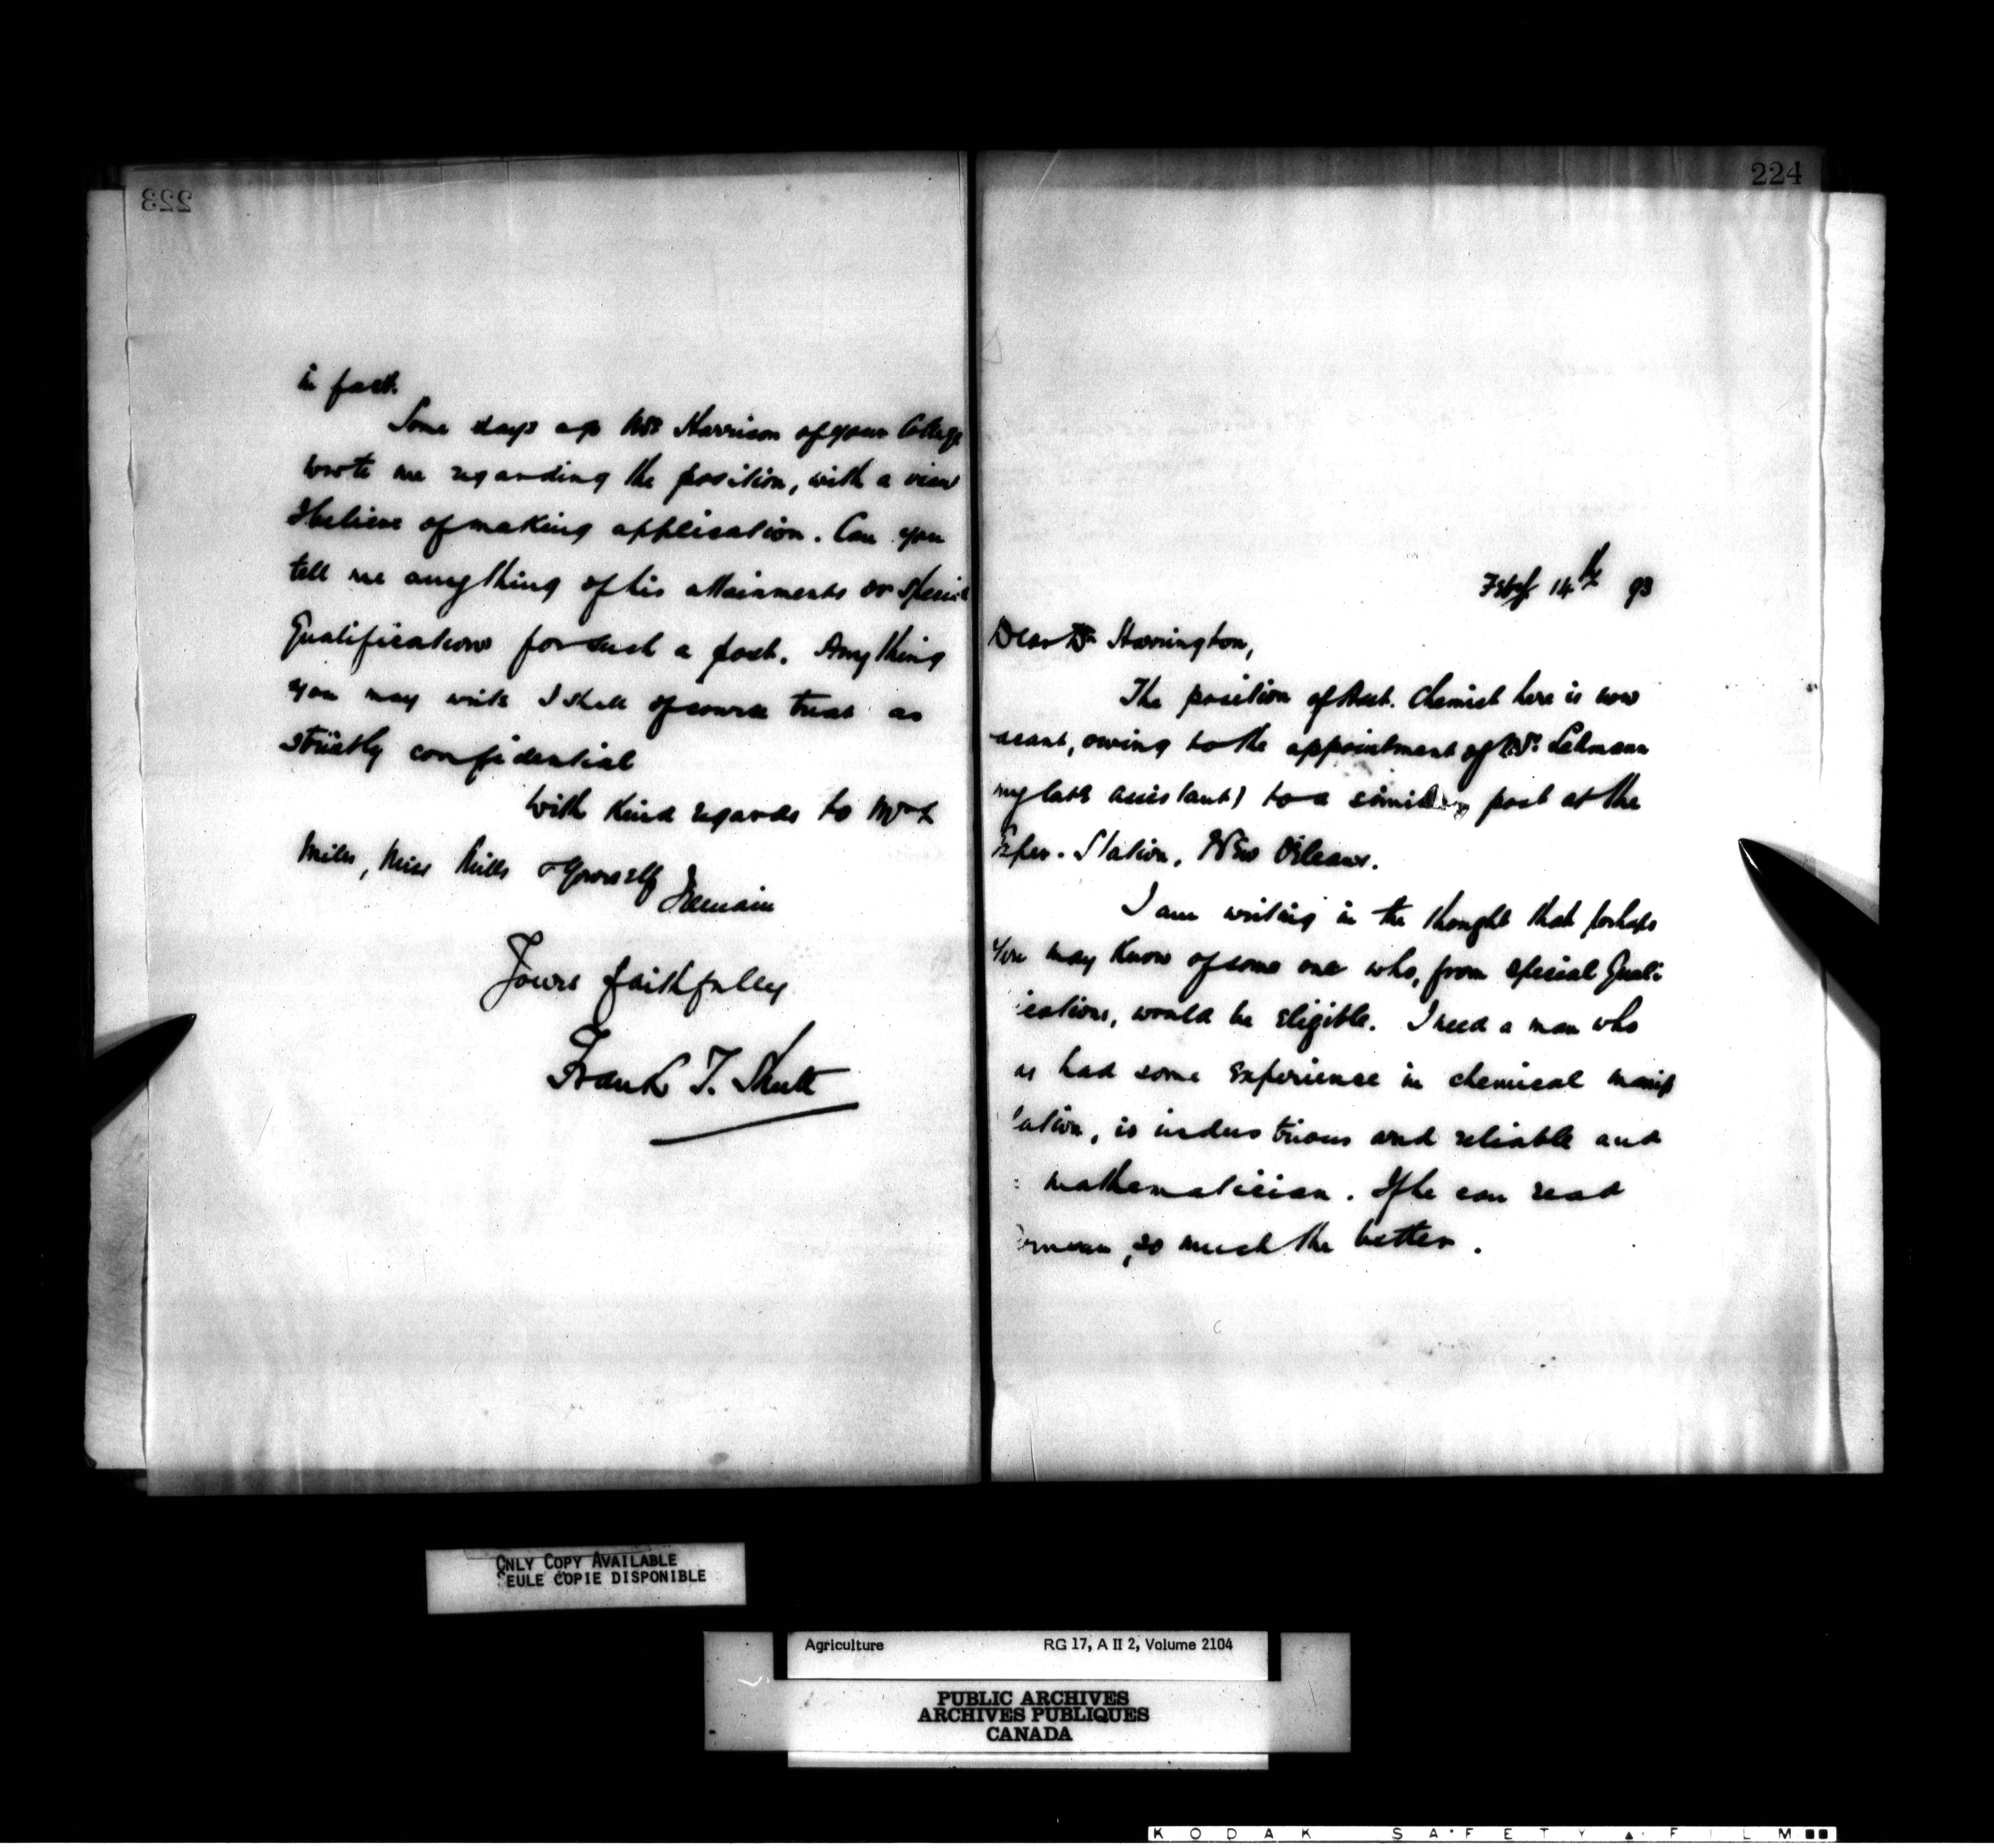 223
in fact.
Some days ago Mr. Harrison of your College
wrote me regarding the position, with a view
I believe of making application. Can you
tell me anything of his attainments or special
Qualifications for such a post. Anything
you may write I shall of course treat as
strictly confidential
With kind regards to Mrs
Mills, Miss Mills & Yourself
I remain
Yours faithfully
Frank T. Shutt
224
Feby 14th 93
Dear Dr Harrington,
The position of Asst. Chemist here is now
acant, owing to the appointment of Mr. Lehmann
my late assistant) to a similar post at the
Exper. Station, New Orleans.
I am writing in the thought that perhaps
You may know of some one who, from special Quali
ications, would be eligible. I need a man who
as had some experience in chemical manip
lation, is industrious and reliable and
mathematician. If he can read
rman, so much the better.
ONLY COPY AVAILABLE
SEULE COPIE DISPONIBLE
Agriculture RG 17, A II 2, Volume 2104
PUBLIC ARCHIVES
ARCHIVES PUBLIQUES
CANADA
KODAK SAFETY FILM